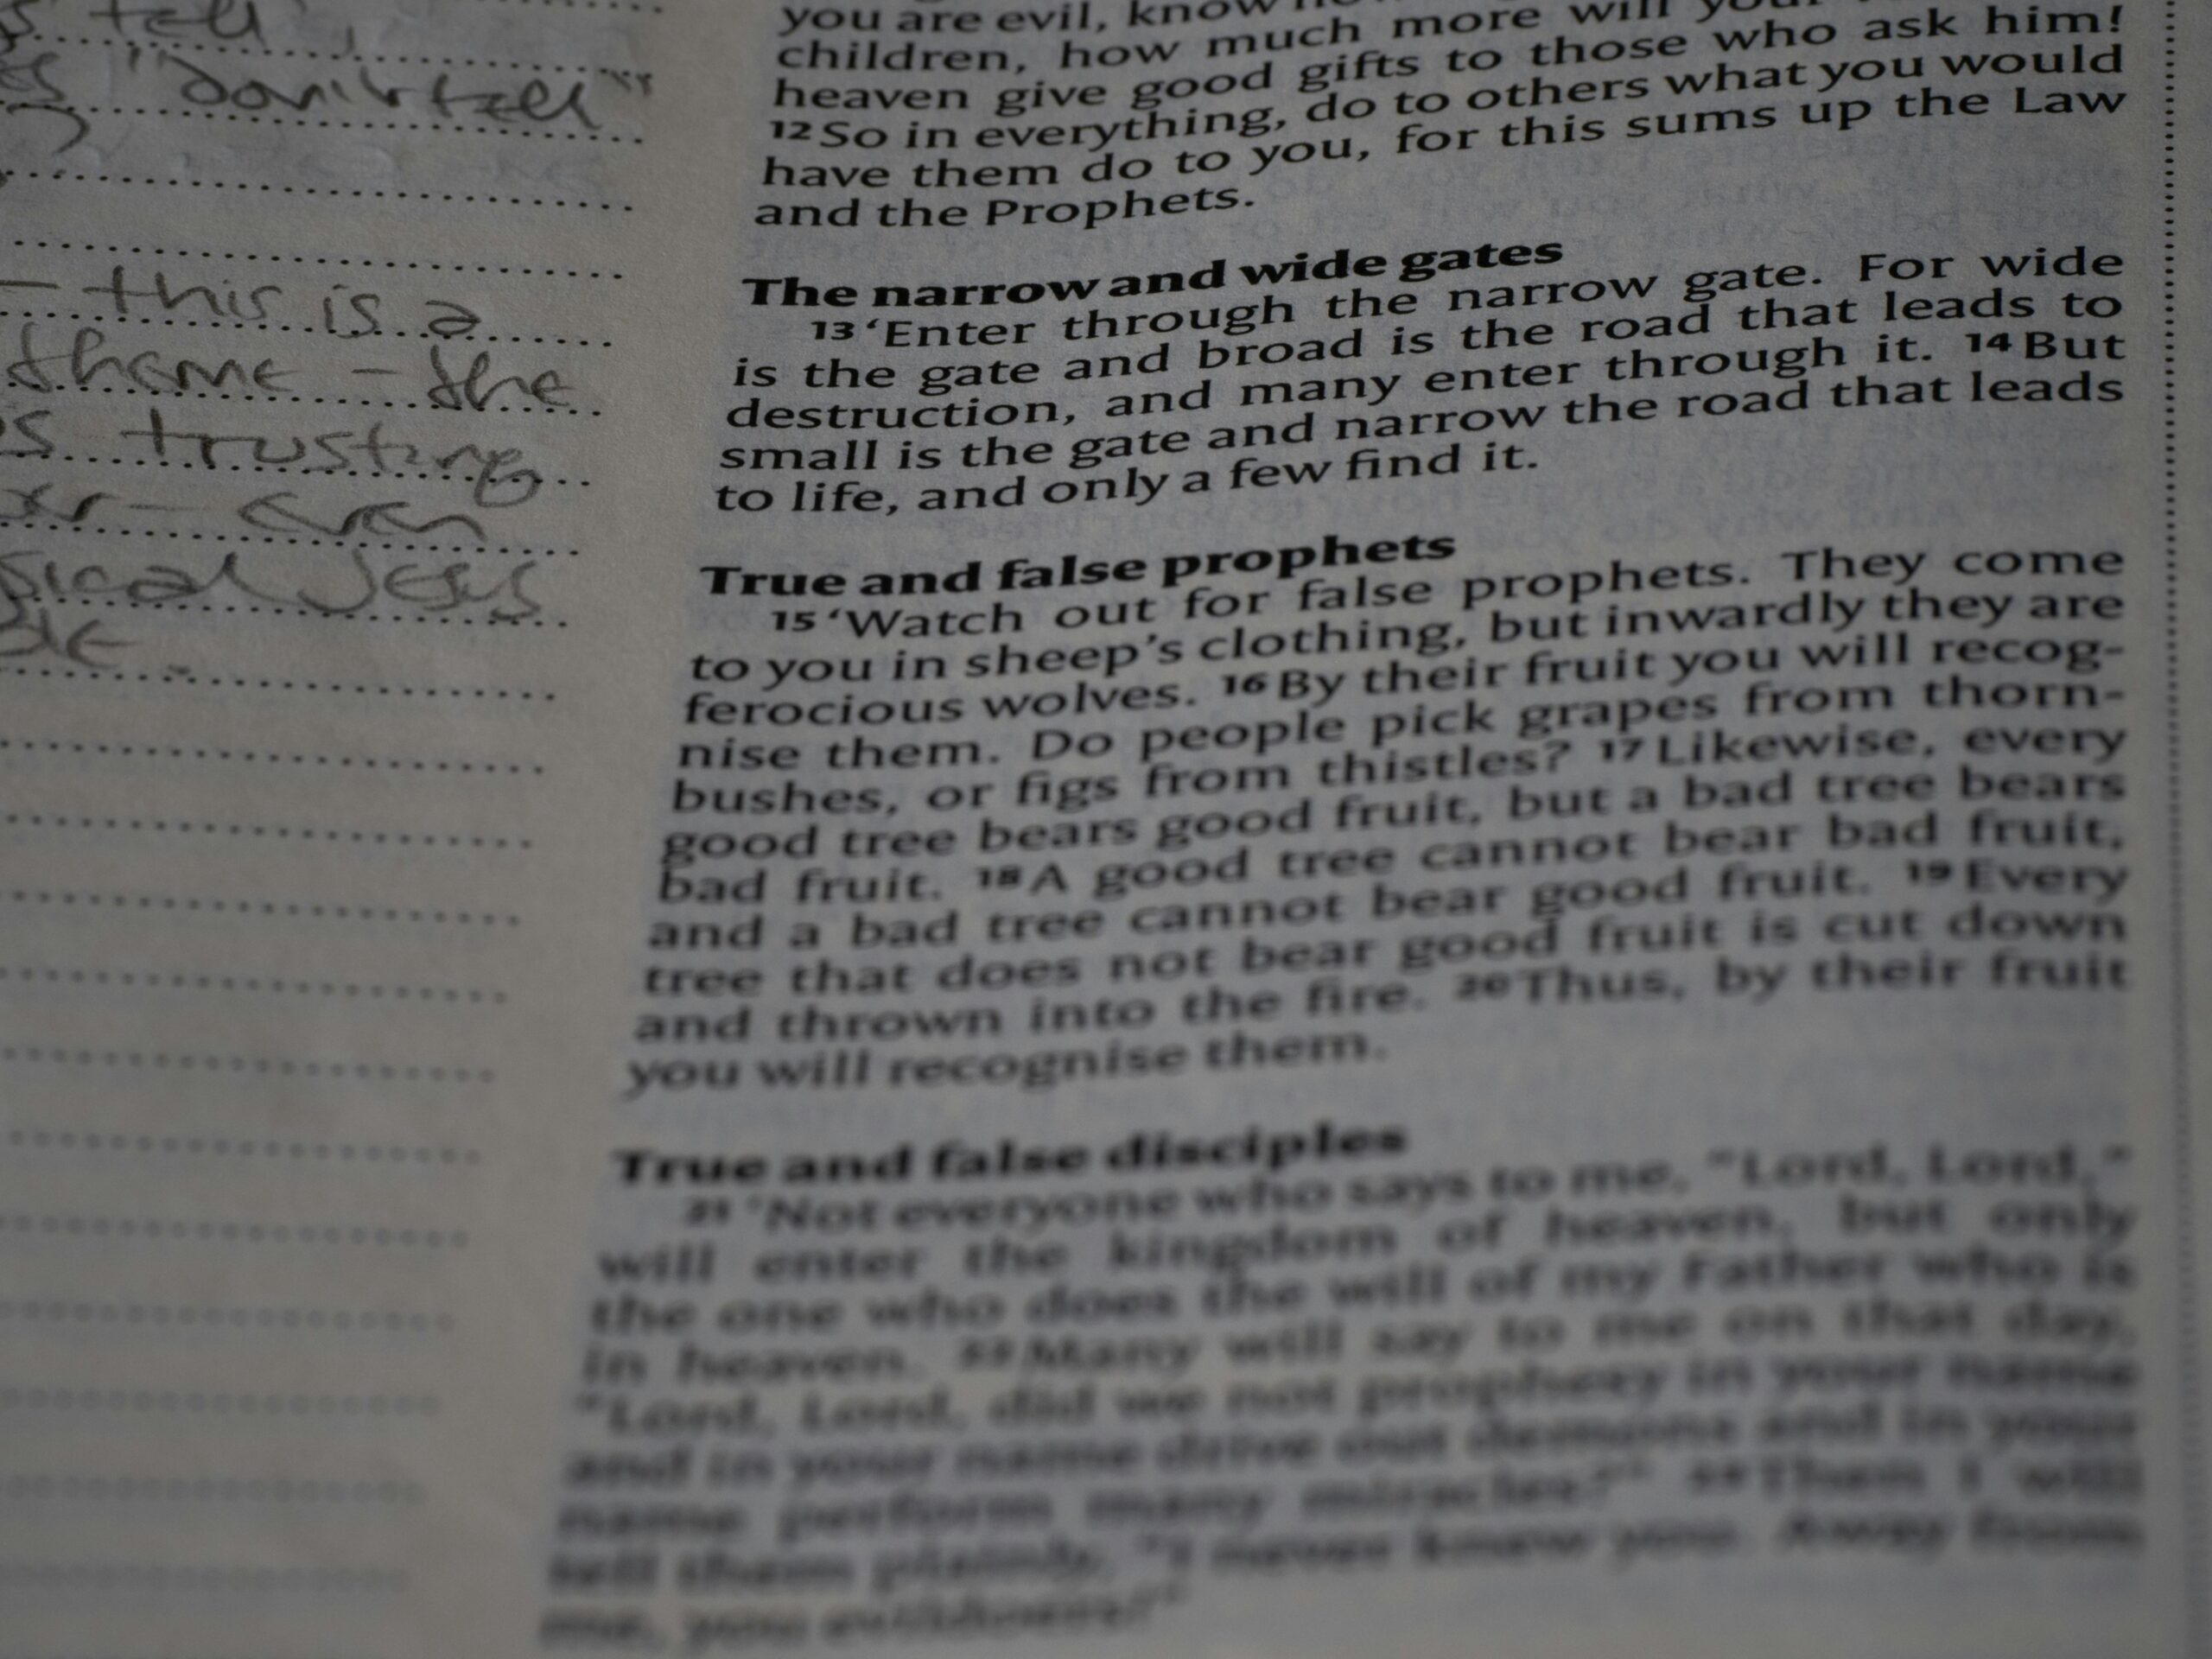 tell,
"don't tell"
– this is a
theme – the
trusting
even
Jesus
you are evil, know
children, how much more will
heaven give good gifts to those who ask him!
12 So in everything, do to others what you would
have them do to you, for this sums up the Law
and the Prophets.
The narrow and wide gates
13 ‘Enter through the narrow gate. For wide
is the gate and broad is the road that leads to
destruction, and many enter through it. 14 But
small is the gate and narrow the road that leads
to life, and only a few find it.
True and false prophets
15 ‘Watch out for false prophets. They come
to you in sheep’s clothing, but inwardly they are
ferocious wolves. 16 By their fruit you will recog-
nise them. Do people pick grapes from thorn-
bushes, or figs from thistles? 17 Likewise, every
good tree bears good fruit, but a bad tree bears
bad fruit. 18 A good tree cannot bear bad fruit,
and a bad tree cannot bear good fruit. 19 Every
tree that does not bear good fruit is cut down
and thrown into the fire. 20 Thus, by their fruit
you will recognise them.
True and false disciples
21 ‘Not everyone who says to me, “Lord, Lord,”
will enter the kingdom of heaven, but only
the one who does the will of my Father who is
in heaven. 22 Many will say to me on that day,
“Lord, Lord, did we not prophesy in your name
and in your name drive out demons and in your
name perform many miracles?” 23 Then I will
tell them plainly, “I never knew you. Away from
me, you evildoers!”